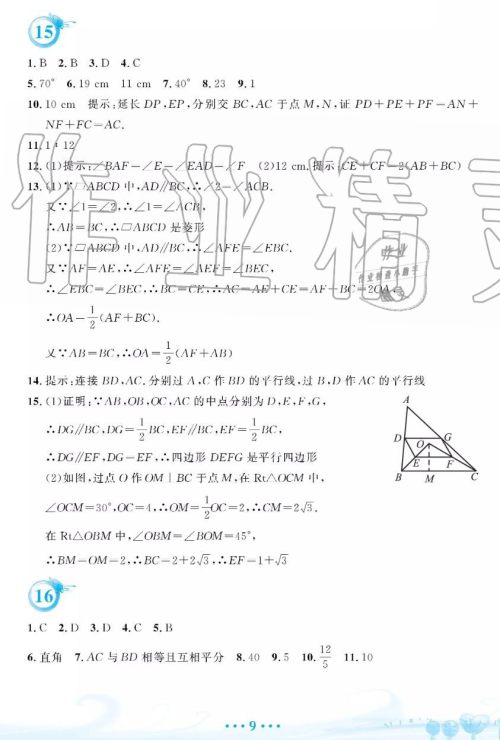 15
1. B 2. B 3. D 4. C
5. 70° 6. 19 cm 11 cm 7. 40° 8. 23 9. 1
10. 10 cm 提示:延长 DP,EP,分别交 BC,AC 于点 M,N,证 PD+PE+PF=AN+
NF+FC=AC.
11. 1:12
12. (1)提示:∠BAF=∠E=∠EAD=∠F (2)12 cm.提示:CE+CF=2(AB+BC)
13. (1)∵▱ABCD 中,AD∥BC,∴∠2=∠ACB.
又∵∠1=∠2,∴∠1=∠ACB,
∴AB=BC,∴▱ABCD 是菱形
(2)∵▱ABCD 中,AD∥BC,∴∠AFE=∠EBC.
又∵AF=AE,∴∠AFE=∠AEF=∠BEC,
∴∠EBC=∠BEC,∴BC=CE,∴AC=AE+CE=AF+BC=2OA,
∴OA=1/2(AF+BC).
又∵AB=BC,∴OA=1/2(AF+AB)
14. 提示:连接 BD,AC.分别过 A,C 作 BD 的平行线,过 B,D 作 AC 的平行线
15. (1)证明:∵AB,OB,OC,AC 的中点分别为 D,E,F,G,
∴DG∥BC,DG=1/2BC,EF∥BC,EF=1/2BC,
∴DG∥EF,DG=EF,∴四边形 DEFG 是平行四边形
(2)如图,过点 O 作 OM⊥BC 于点 M,在 Rt△OCM 中,
∠OCM=30°,OC=4,∴OM=1/2OC=2,∴CM=2√3.
在 Rt△OBM 中,∠OBM=∠BOM=45°,
∴BM=OM=2,∴BC=2+2√3,∴EF=1+√3
A
D G
O
E F
B M C
16
1. C 2. D 3. D 4. C 5. B
6. 直角 7. AC 与 BD 相等且互相平分 8. 40 9. 5 10. 12/5 11. 10
9
作业精